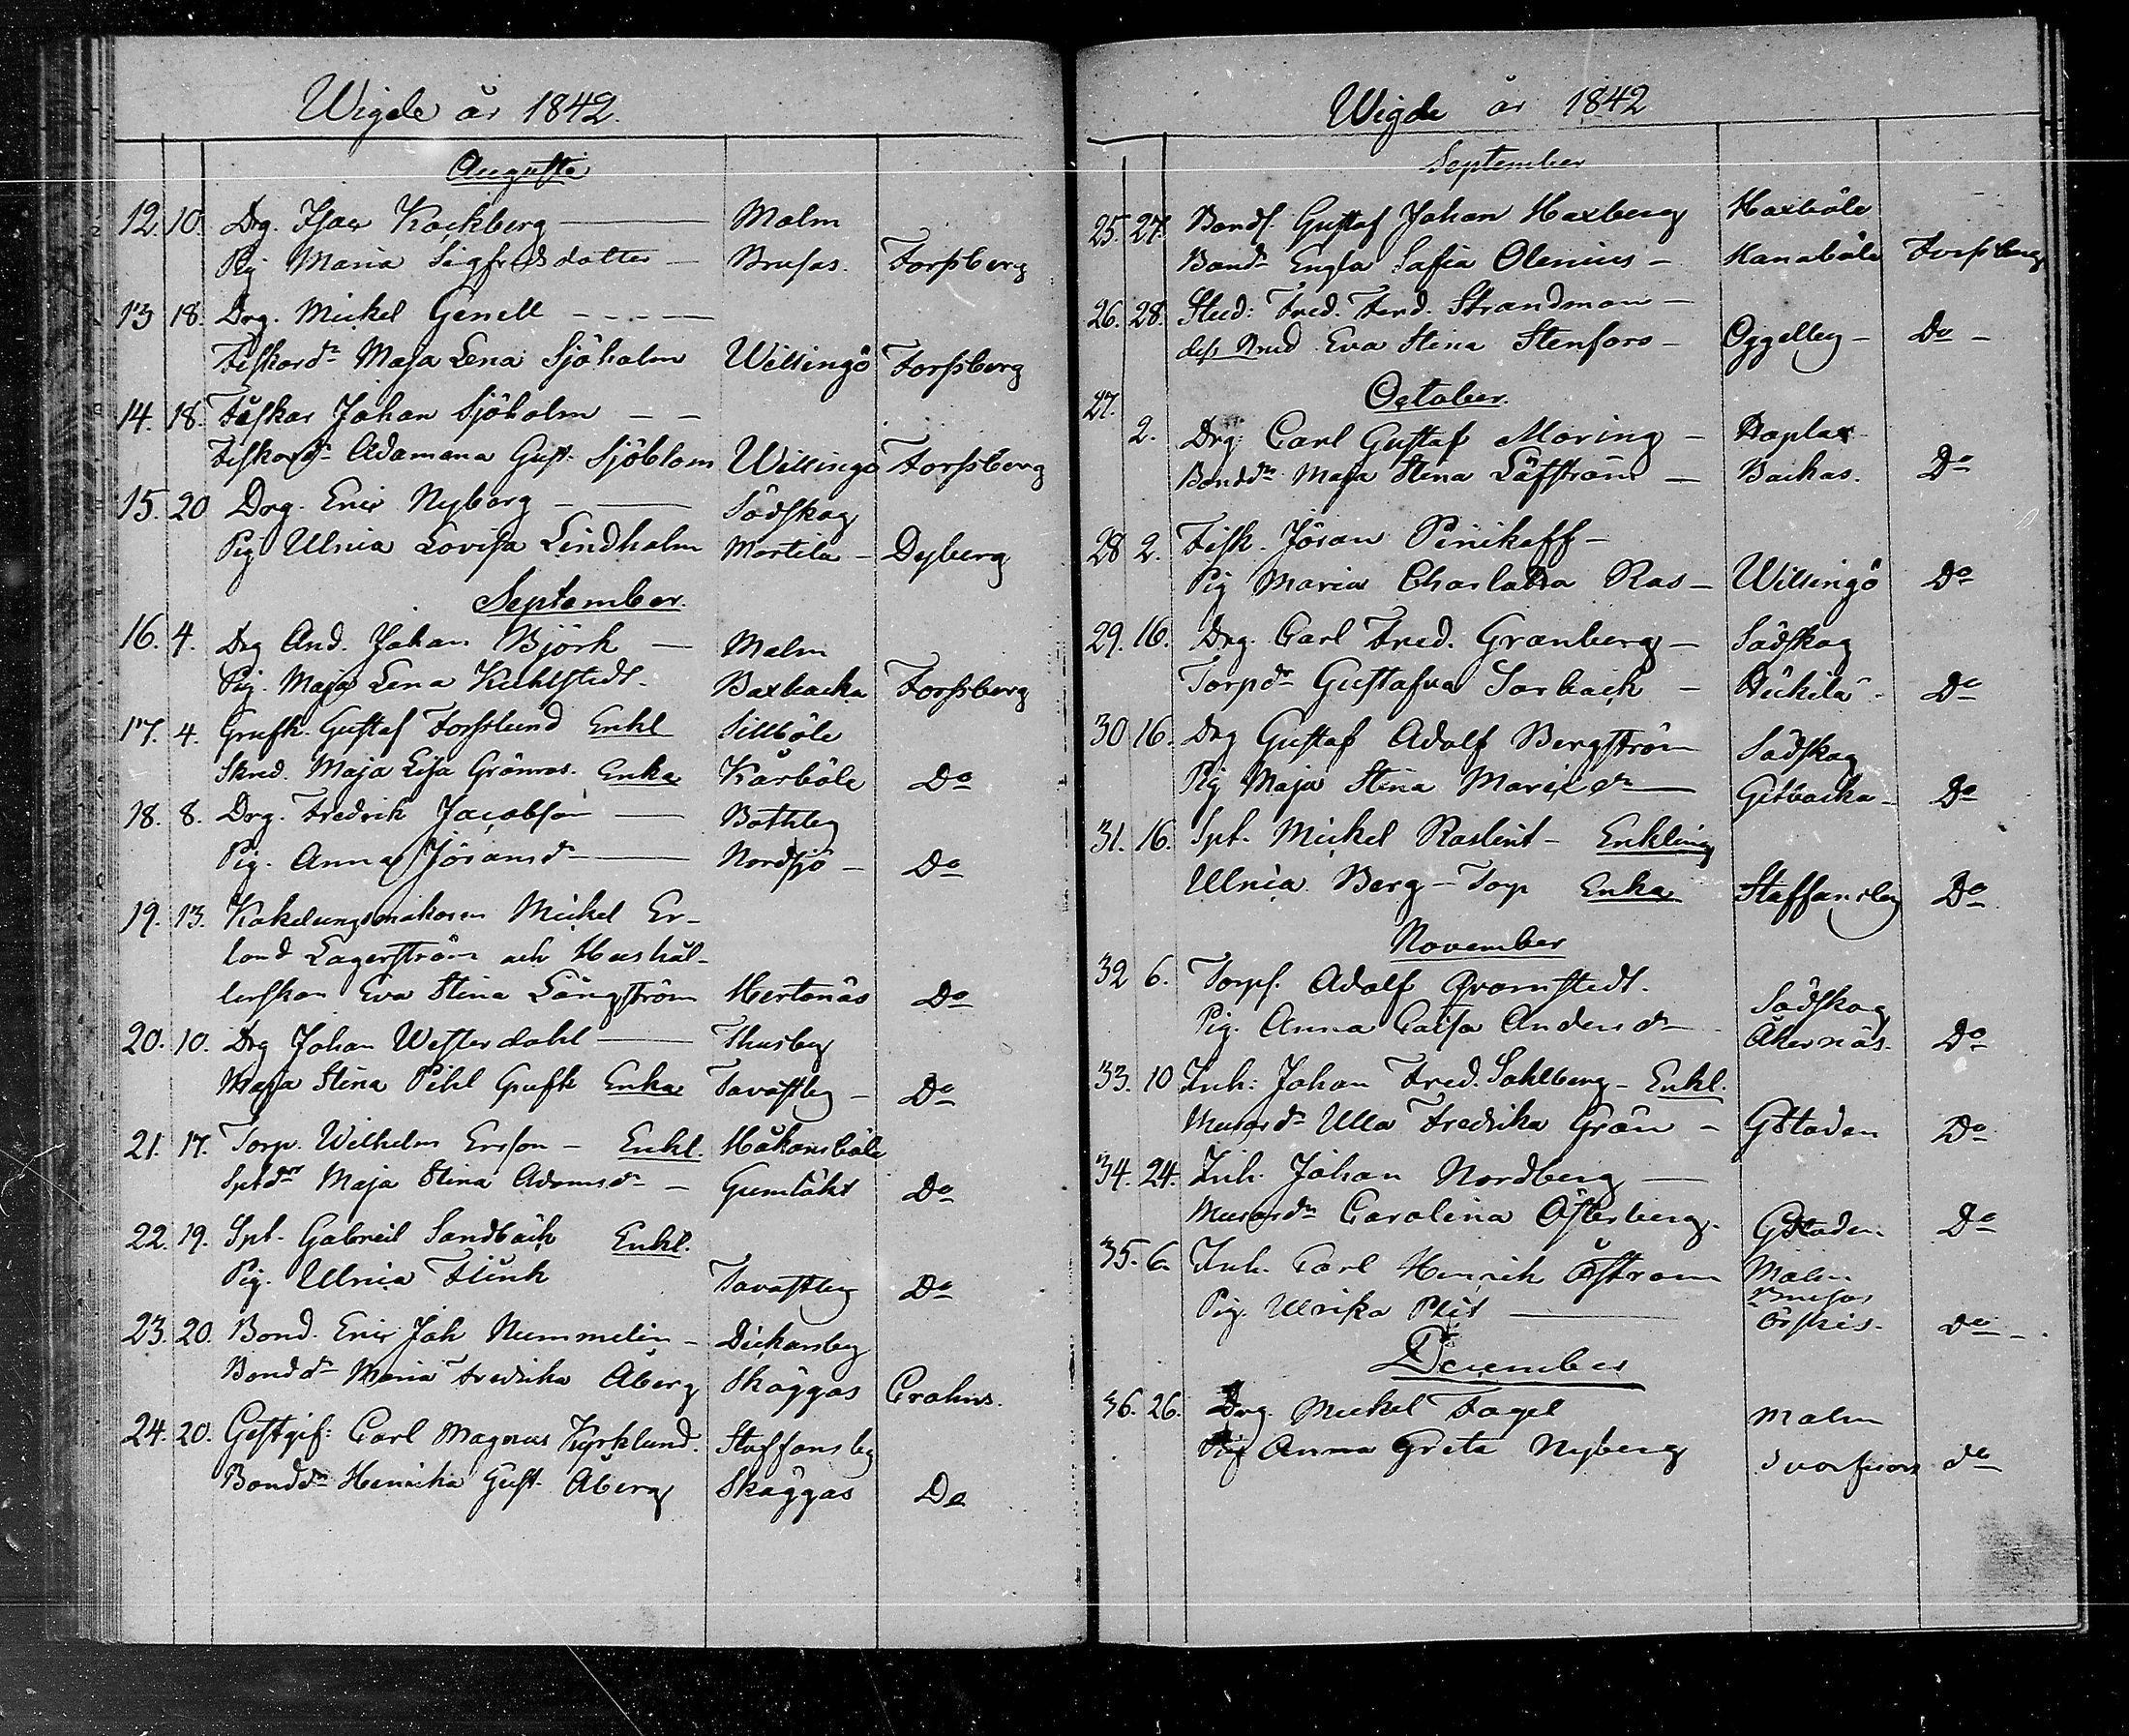 Wigde år 1842.
Augusti
12. 10. Drg. Isac Kackberg — Malm
Pig Maria Sigfridsdotter — Brusas. Forssberg
13 18. Drg. Mickel Genell - - - —
Fiskard:r Maja Lena Sjöholm Willingö Forssberg
14. 18. Fiskar Johan Sjöholm — —
Fiskard:r Adamana Gust. Sjöblom Willingö Forssberg
15. 20 Drg. Eric Nyberg — Sodskog
Pig Ulrica Lovisa Lindholm Mortila — Dyberg
September.
16. 4. Drg And. Johan Björk — Malm
Pig. Maja Lena Kuhlstedt. Baxbacka Forssberg
17. 4. Grufk. Gustaf Forsslund Enkl Sillböle
Skred. Maja Lisa Grönroos. Enka Kårböle Do
18. 8. Drg. Fredrik Jacobson — Bothby
Pig. Anna Jöransd:r — Nordsjö — Do
19. 13. Kakelungsmakaren Mickel Er-
land Lagerström och Hushål-
lerskan Eva Stina Långström Hertonäs Do
20. 10. Drg Johan Westerdahl — Thusby
Maja Stina Pihl Grufk Enka Tavastby — Do
21. 17. Torp. Wilhelm Ersson — Enkl. Håkansböle
Sptd:r Maja Stina Adamsd:r — Gumtäkt Do
22. 19. Spt. Gabriel Sandbäck Enkl.
Pig. Ulrica Flink Tavastby Do
23. 20. Bond. Eric Joh Nummelin — Dickursby
Bondd:r Maria Fredrika Åberg Skäggas Crohns.
24. 20. Gestgif: Carl Magnus Kyrklund. Staffansby
Bondd:r Henrika Gust. Åberg Skäggas Do
Wigde år 1842
September
25. 27. Bonds. Gustaf Johan Haxberg Haxböle
Bondr Engla Safia Olenius — Hanaböle Forssberg
26. 28. Stud: Fred. Ferd. Strandman —
dess Brud Eva Stina Stenfors — Oggelby — Do —
27. October.
2. Drg. Carl Gustaf Moring — Hoplax
Bondd:r Maja Stina Löfström — Backas. Do
28 2. Fisk. Jöran Pinikoff —
Pig Maria Charlotta Ras — Willingö Do
29. 16. Drg. Carl Fred. Granberg — Sodskog
Torpd:r Gustafva Sarback — Do
30 16. Drg Gustaf Adolf Bergström Sodskog
Pig Maja Stina Marixdr — Getbacka — Do
31. 16. Spt. Mickel Raslint — Enkling
Ulrica Berg — Torp Enka Staffansby Do
November
32 6. Torps. Adolf Qvarnstedt. Sodskog
Pig. Anna Caisa Andersdr — Åkernäs. Do
33. 10 Inh: Johan Fred. Sahlberg — Enkl.
Murard:r Ulla Fredrika Grön — GStaden Do
34. 24. Inh. Johan Nordberg —
Murard:r Carolina Österberg. GStaden. Do
35. 6. Inh. Carl Henrik Öström Malm
Brusas
Pig. Ulrika Plit — Öfskis. do — .
December
36. 26. Drg. Mickel Fagel Malm
Pig Anna Greta Nyberg do